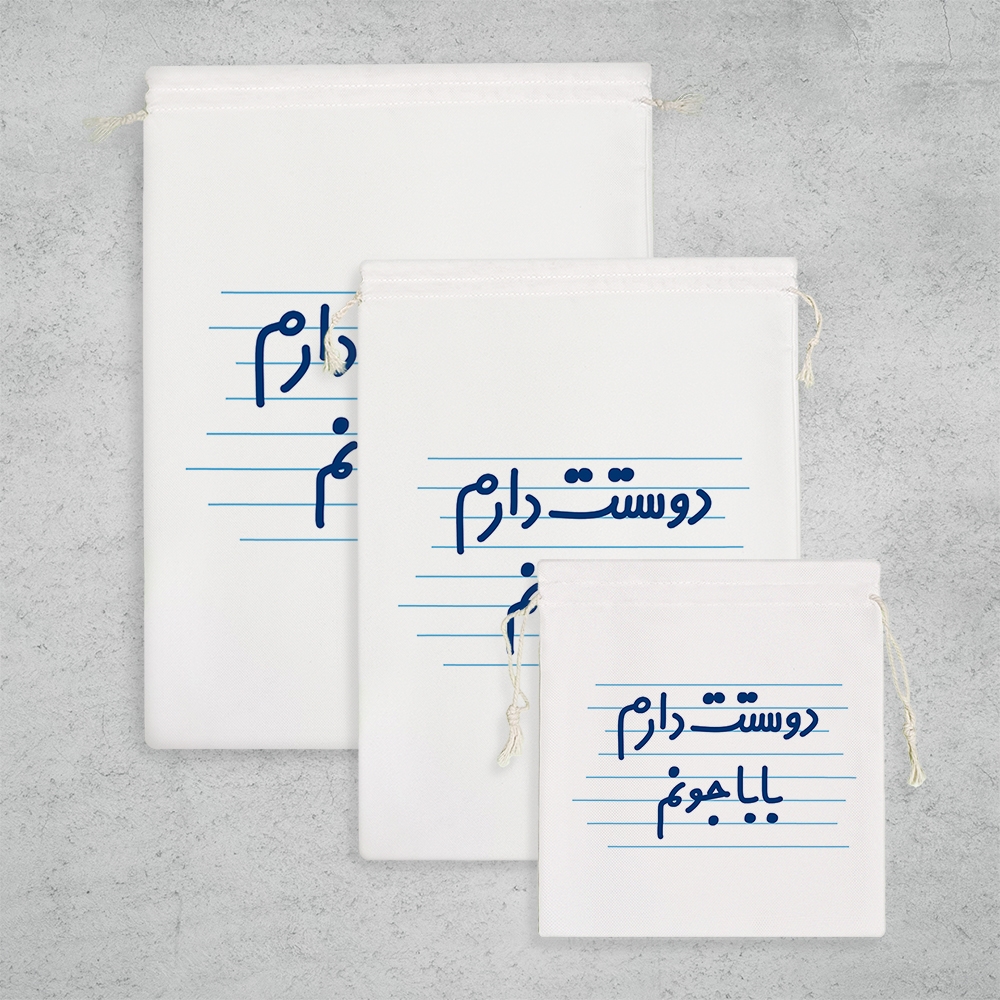 دارم
نم
دوستت دارم
دوستت دارم
بابا جونم